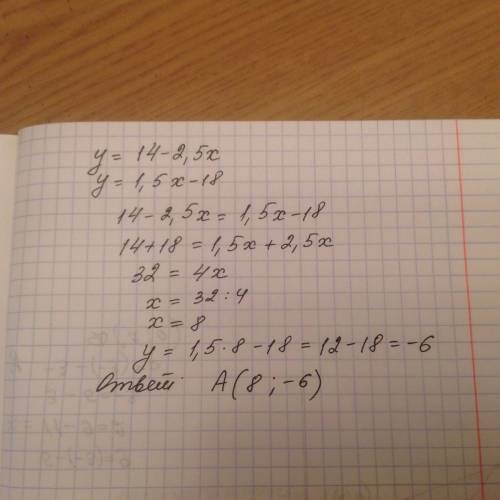 y = 14 - 2,5x
y = 1,5x - 18
14 - 2,5x = 1,5x - 18
14 + 18 = 1,5x + 2,5x
32 = 4x
x = 32 : 4
x = 8
y = 1,5 · 8 - 18 = 12 - 18 = -6
Ответ: A(8 ; -6)